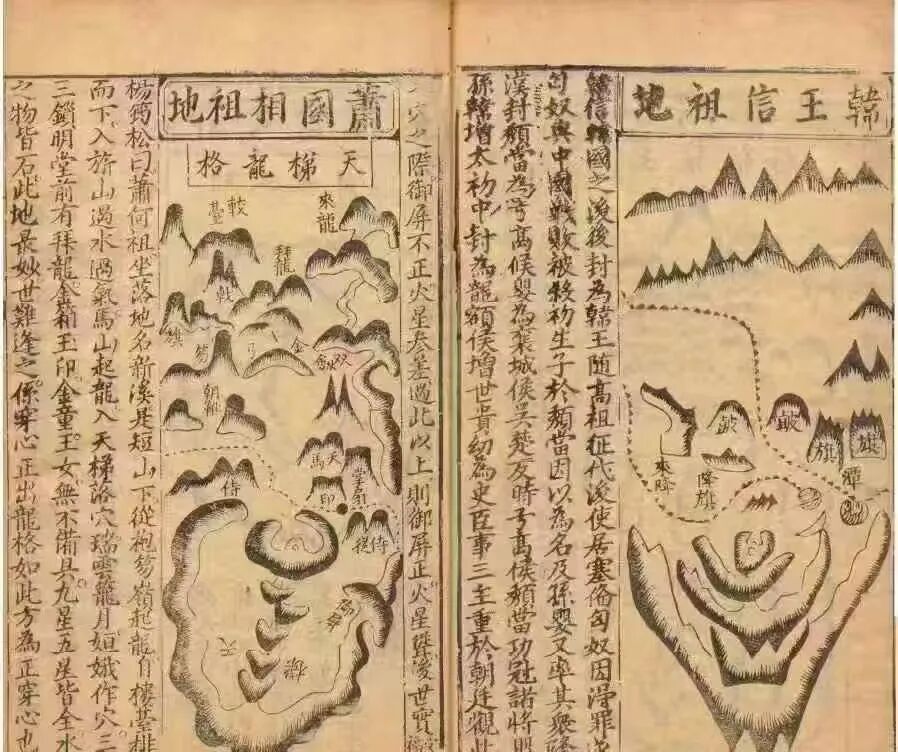 韓王信祖地
鼓
鼓
旗
旗
降旗
來降
潭
韓信韓國之後後封為韓王随高祖征代後使居塞
匈奴與中國戰敗被殺初生子於頹當因以為名及孫嬰又率其衆
漢封頹當為弓高候嬰為襄城侯吳楚反時弓高侯頹當功冠諸將
孫韓增太初中封為龍額侯增世貴幼為史臣事三主重於朝廷觀此
穴之際御屏不正火星參差過此以上則御屏正火星聳後世實
蕭國相祖地
天梯龍格
來龍
鼓臺
拜龍
戟
旗
笏
弓
金
朝報
天馬
印
侍
侍
天
梯
楊筠松曰蕭何祖坐落地名新溪是短山下從袍笏嶺起龍自樓臺排
而下入旂山過水過氣馬山起龍入天梯落穴瑞雲籠月姮娥作穴三
三鎖明堂前有拜龍金箱玉印金童玉女無不備具九星五星皆全水
之物皆石此地最妙世難逢之係穿心正出龍格如此方為正穿心也